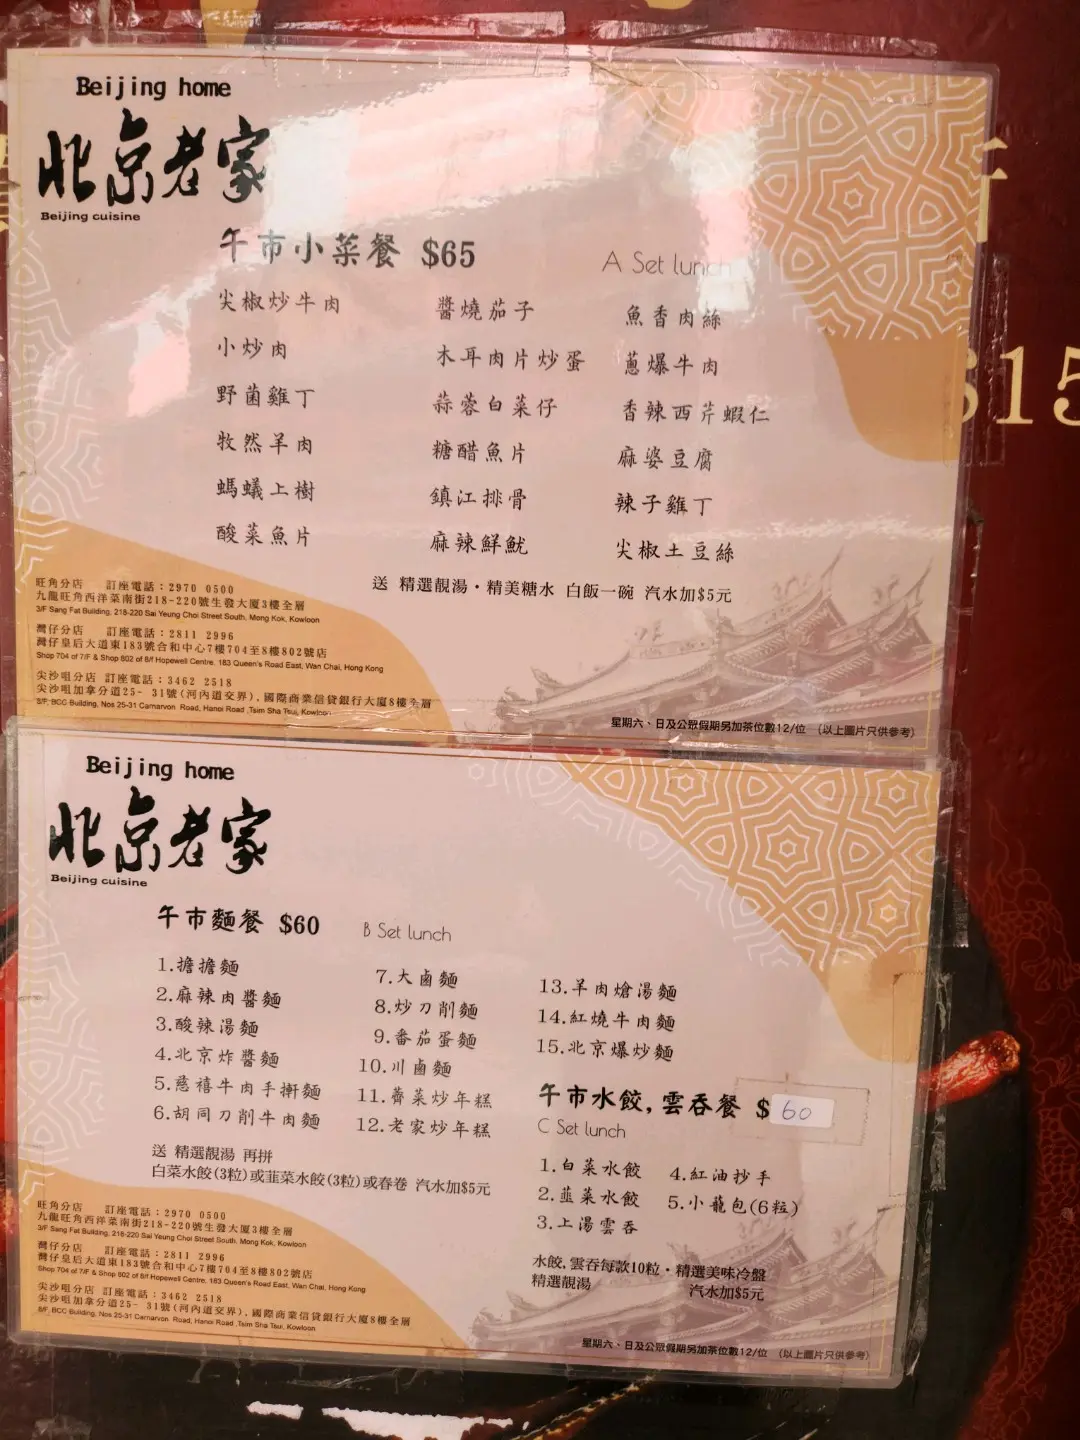 Beijing home
北京老家
Beijing cuisine
午市小菜餐 $65
A Set lunch
尖椒炒牛肉
小炒肉
野菌雞丁
牧然羊肉
螞蟻上樹
酸菜魚片
醬燒茄子
木耳肉片炒蛋
蒜蓉白菜仔
糖醋魚片
鎮江排骨
麻辣鮮魷
魚香肉絲
蔥爆牛肉
香辣西芹蝦仁
麻婆豆腐
辣子雞丁
尖椒土豆絲
送 精選靚湯・精美糖水 白飯一碗 汽水加$5元
旺角分店 訂座電話：2970 0500
九龍旺角西洋菜南街218-220號生發大廈3樓全層
3/F Sang Fat Building, 218-220 Sai Yeung Choi Street South, Mong Kok, Kowloon
灣仔分店 訂座電話：2811 2996
灣仔皇后大道東183號合和中心7樓704至8樓802號店
Shop 704 of 7/F & Shop 802 of 8/f Hopewell Centre, 183 Queen's Road East, Wan Chai, Hong Kong
尖沙咀分店 訂座電話：3462 2518
尖沙咀加拿分道25- 31號(河內道交界)﹐國際商業信貸銀行大廈8樓全層
8/F, BCC Building, Nos 25-31 Carnarvon Road, Hanoi Road ,Tsim Sha Tsui, Kowloon
星期六、日及公眾假期另加茶位數12/位 （以上圖片只供參考）
315
Beijing home
北京老家
Beijing cuisine
午市麵餐 $60
B Set lunch
1.擔擔麵
2.麻辣肉醬麵
3.酸辣湯麵
4.北京炸醬麵
5.慈禧牛肉手擀麵
6.胡同刀削牛肉麵
7.大鹵麵
8.炒刀削麵
9.番茄蛋麵
10.川鹵麵
11.薺菜炒年糕
12.老家炒年糕
13.羊肉燴湯麵
14.紅燒牛肉麵
15.北京爆炒麵
送 精選靚湯 再拼
白菜水餃(3粒)或韮菜水餃(3粒)或春卷 汽水加$5元
午市水餃,雲吞餐 $60
C Set lunch
1.白菜水餃
2.韮菜水餃
3.上湯雲吞
4.紅油抄手
5.小籠包(6粒)
水餃,雲吞每款10粒・精選美味冷盤
精選靚湯 汽水加$5元
旺角分店 訂座電話：2970 0500
九龍旺角西洋菜南街218-220號生發大廈3樓全層
3/F Sang Fat Building, 218-220 Sai Yeung Choi Street South, Mong Kok, Kowloon
灣仔分店 訂座電話：2811 2996
灣仔皇后大道東183號合和中心7樓704至8樓802號店
Shop 704 of 7/F & Shop 802 of 8/f Hopewell Centre, 183 Queen's Road East, Wan Chai, Hong Kong
尖沙咀分店 訂座電話：3462 2518
尖沙咀加拿分道25- 31號(河內道交界)﹐國際商業信貸銀行大廈8樓全層
8/F, BCC Building, Nos 25-31 Carnarvon Road, Hanoi Road ,Tsim Sha Tsui, Kowloon
星期六、日及公眾假期另加茶位數12/位 （以上圖片只供參考）